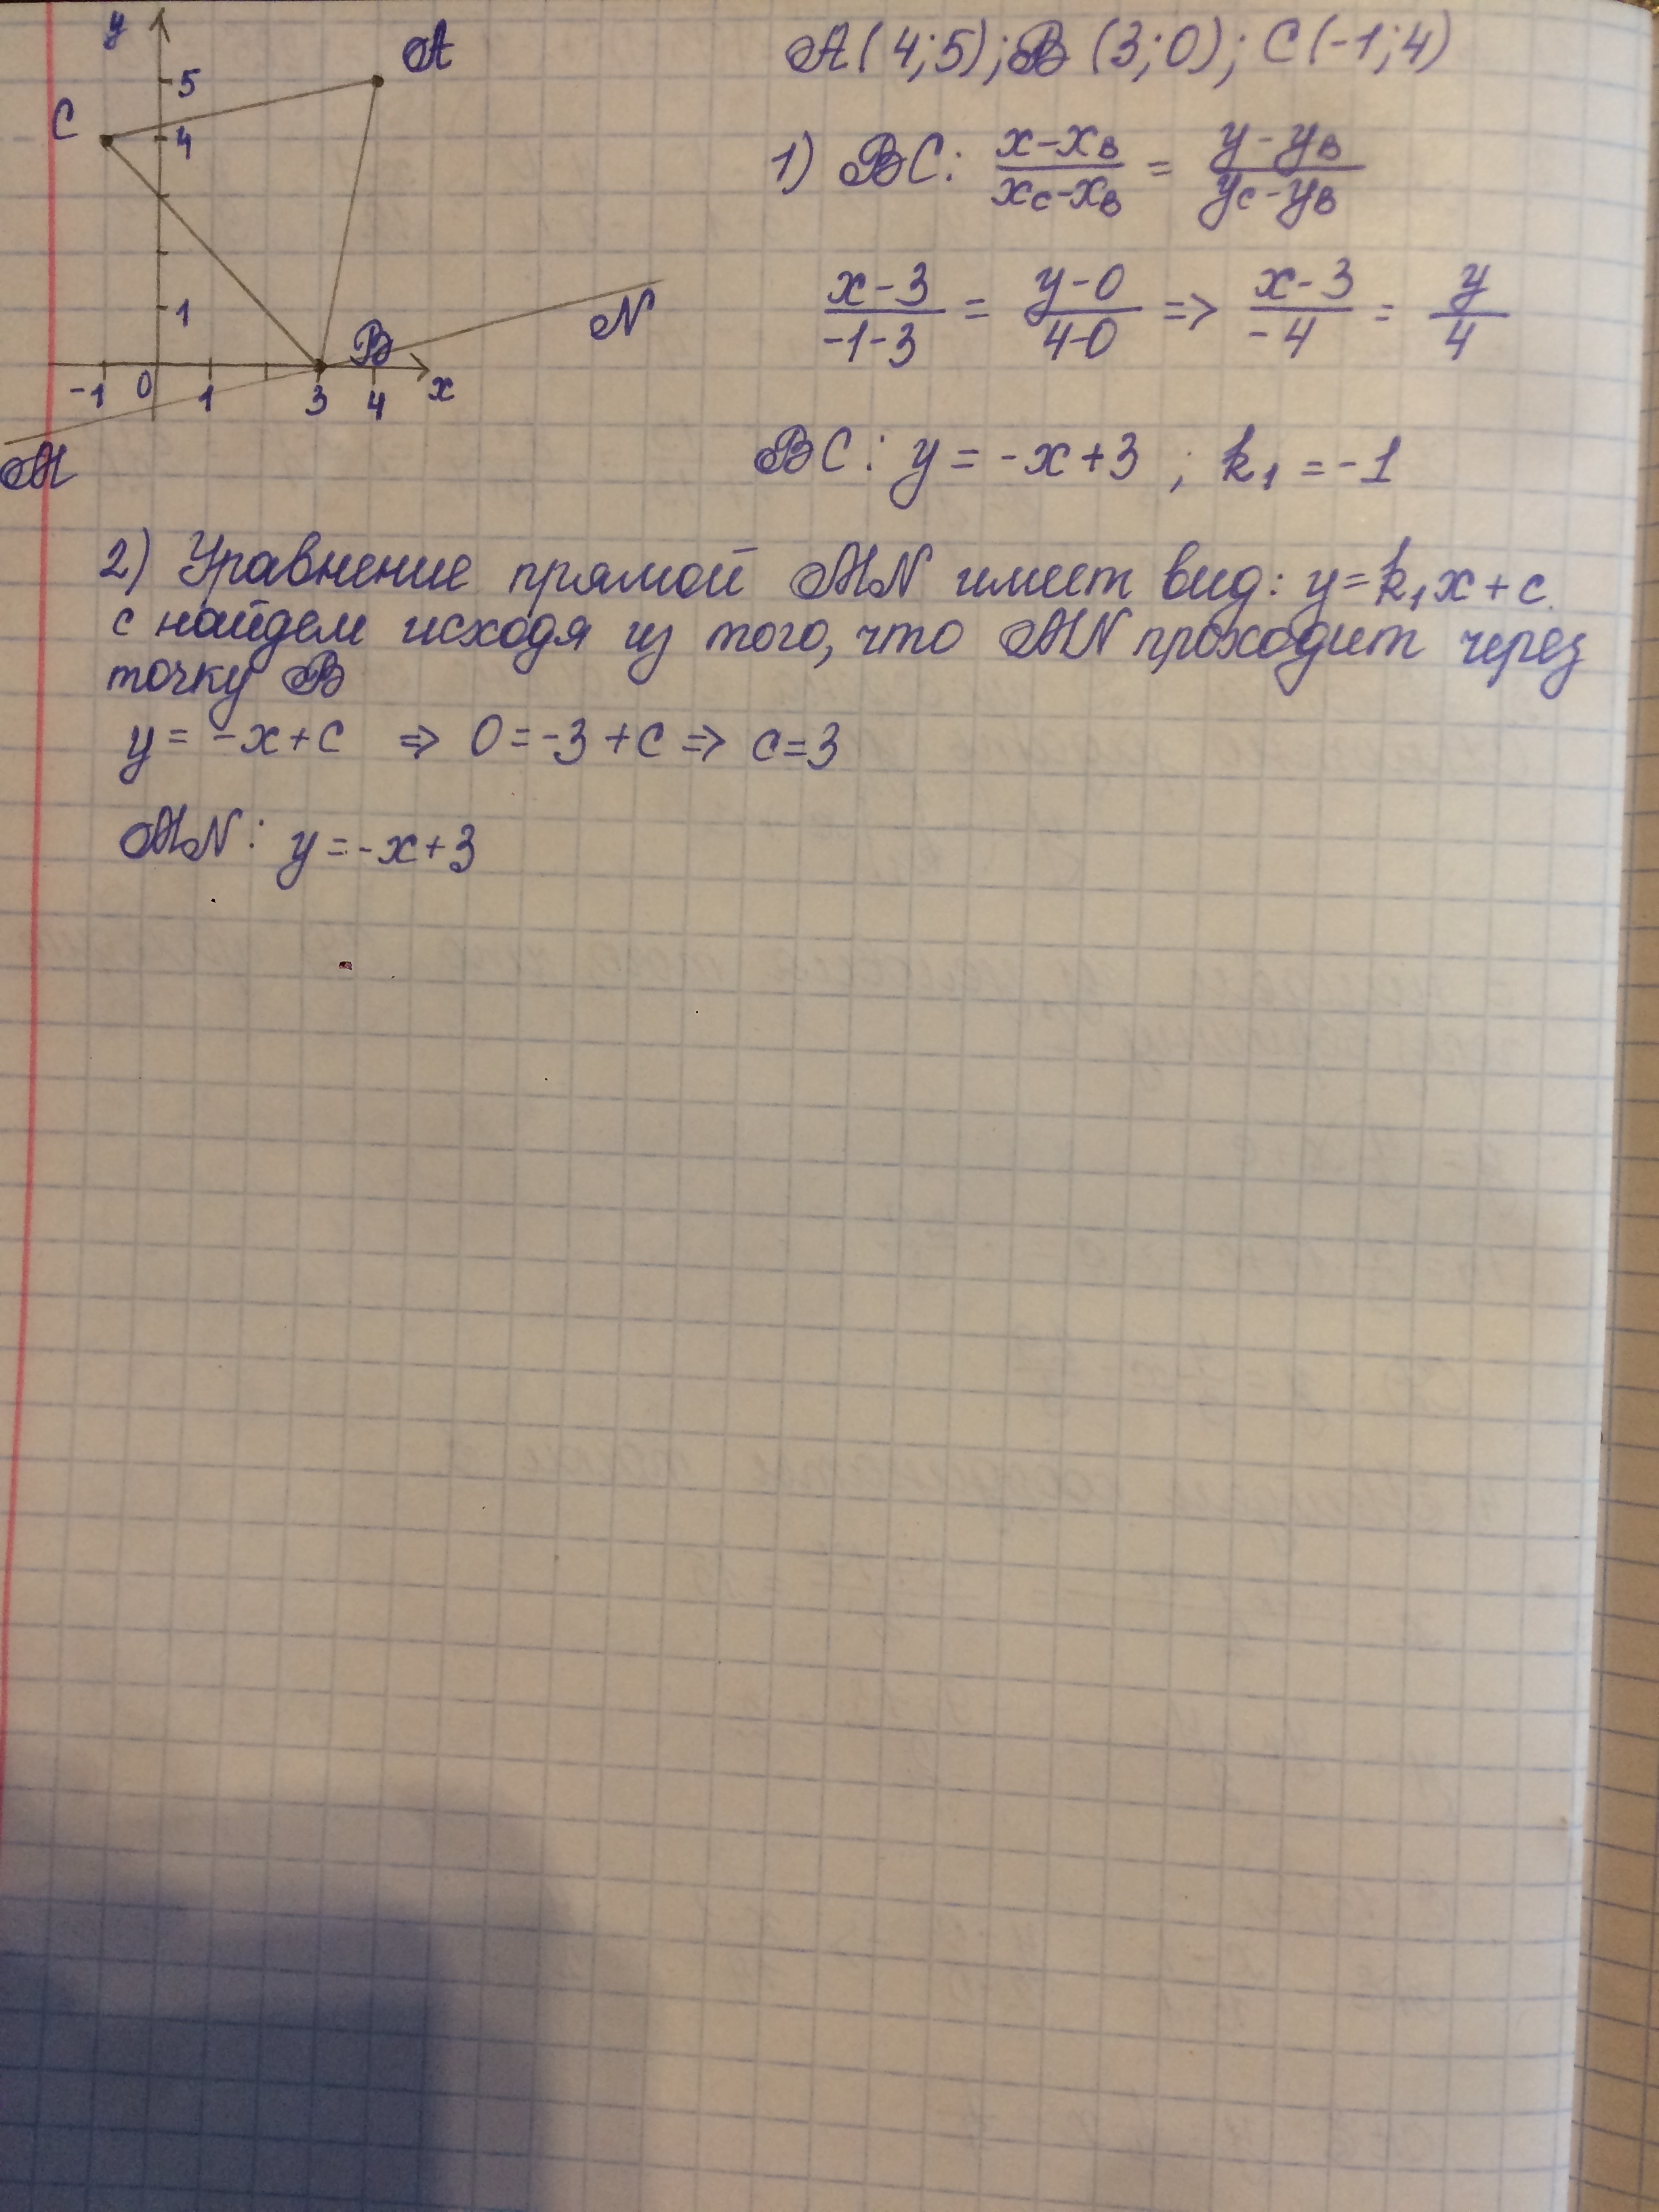 y
A
5
C
4
1
N
B
-1 0 1 3 4 x
M
A(4;5); B(3;0); C(-1;4)
1) BC: (x-x_B)/(x_C-x_B) = (y-y_B)/(y_C-y_B)
(x-3)/(-1-3) = (y-0)/(4-0) => (x-3)/(-4) = y/4
BC: y = -x+3 ; k₁ = -1
2) Уравнение прямой MN имеет вид: y=k₁x+c.
c найдем исходя из того, что MN проходит через
точку B
y = -x+c => 0=-3+c => c=3
MN: y=-x+3